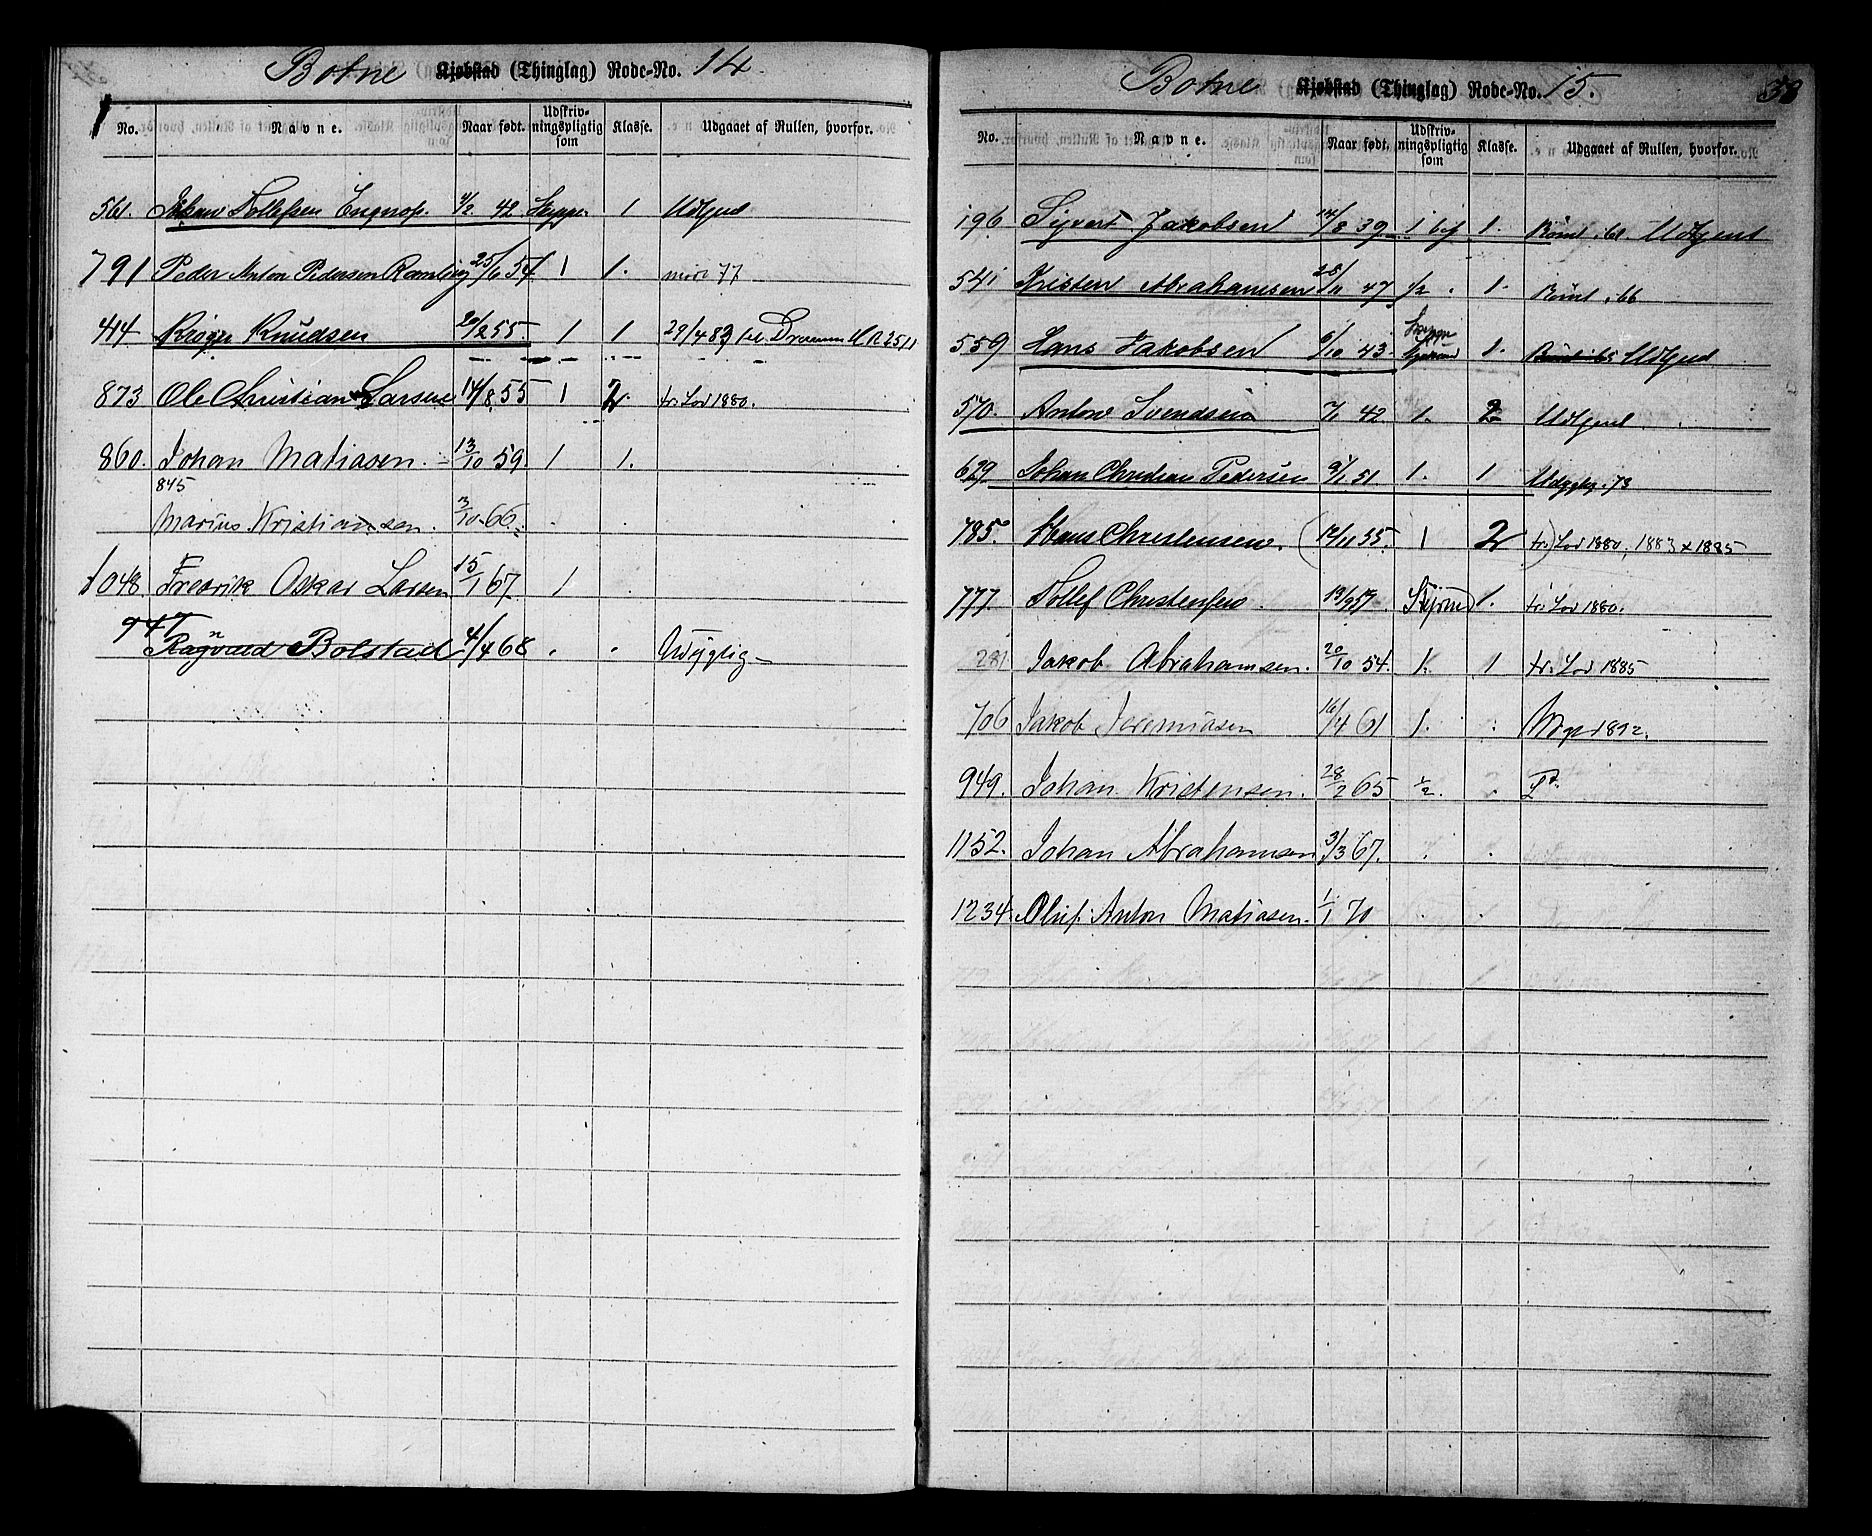 Botne Kjøbstad (Thinglag) Rode-No. 14.
No. Navne. Naar født. Udskrivningspligtig som Klasse. Udgaaet af Rullen, hvorfor.
561. Tollefsen Engnap. 4/2 42 1 Udtjent
791 Peder Anton Pedersen 25/6 54 1 1. 77
414 Krøger Knudsen 20/2 55. 1 1 29/4 83 til Drammen N.R 2511
873 Ole Christian Larsen 14/8.55 1 2. fr. Lov 1880.
860. Johan Matiasen. 13/10 59. 1 1.
845
Marius Kristiansen. 3/10.66. . .
1048. Fredrik Oskar Larsen 15/1 67. 1 .
947
Ragnvald Bolstad 4/4 68 . . Udygtig
Botne Kjøbstad (Thinglag) Rode-No. 15. 38
No. Navne. Naar født. Udskrivningspligtig som Klasse. Udgaaet af Rullen, hvorfor.
196 Sijvert Jakobsen 14/8 39 1. Rømt Udtjent
541 Kristen Abrahamsen 28/11 47 1/2 . 1. Rømt . 66
559 Hans Jakobsen 6/10 43. 1. Rømt 65 Udtjent
570. Anton Svendsen 7/1 42. 1. 2 Udtjent.
629 Johan Christian Pedersen 9/1 51. 1. 1 73
785. Hans Christensen. (12/11 55. 1 2 fr.) Lov 1880, 1883 & 1885
777. Tollef Christensen. 19/9 57 Styrmd 1. fr. Lov 1880.
281 Jakob Abrahamsen. 20/10 54. 1. 1 fr. Lov 1885
706 Jakob Jeremiasen 16/4 61 1. . 1892.
949. Johan Kristensen. 28/2 65 1/2. .
1152. Johan Abrahamsen 3/3 67. . .
1234. Oluf Anton Matiasen. 1/1 70 . .